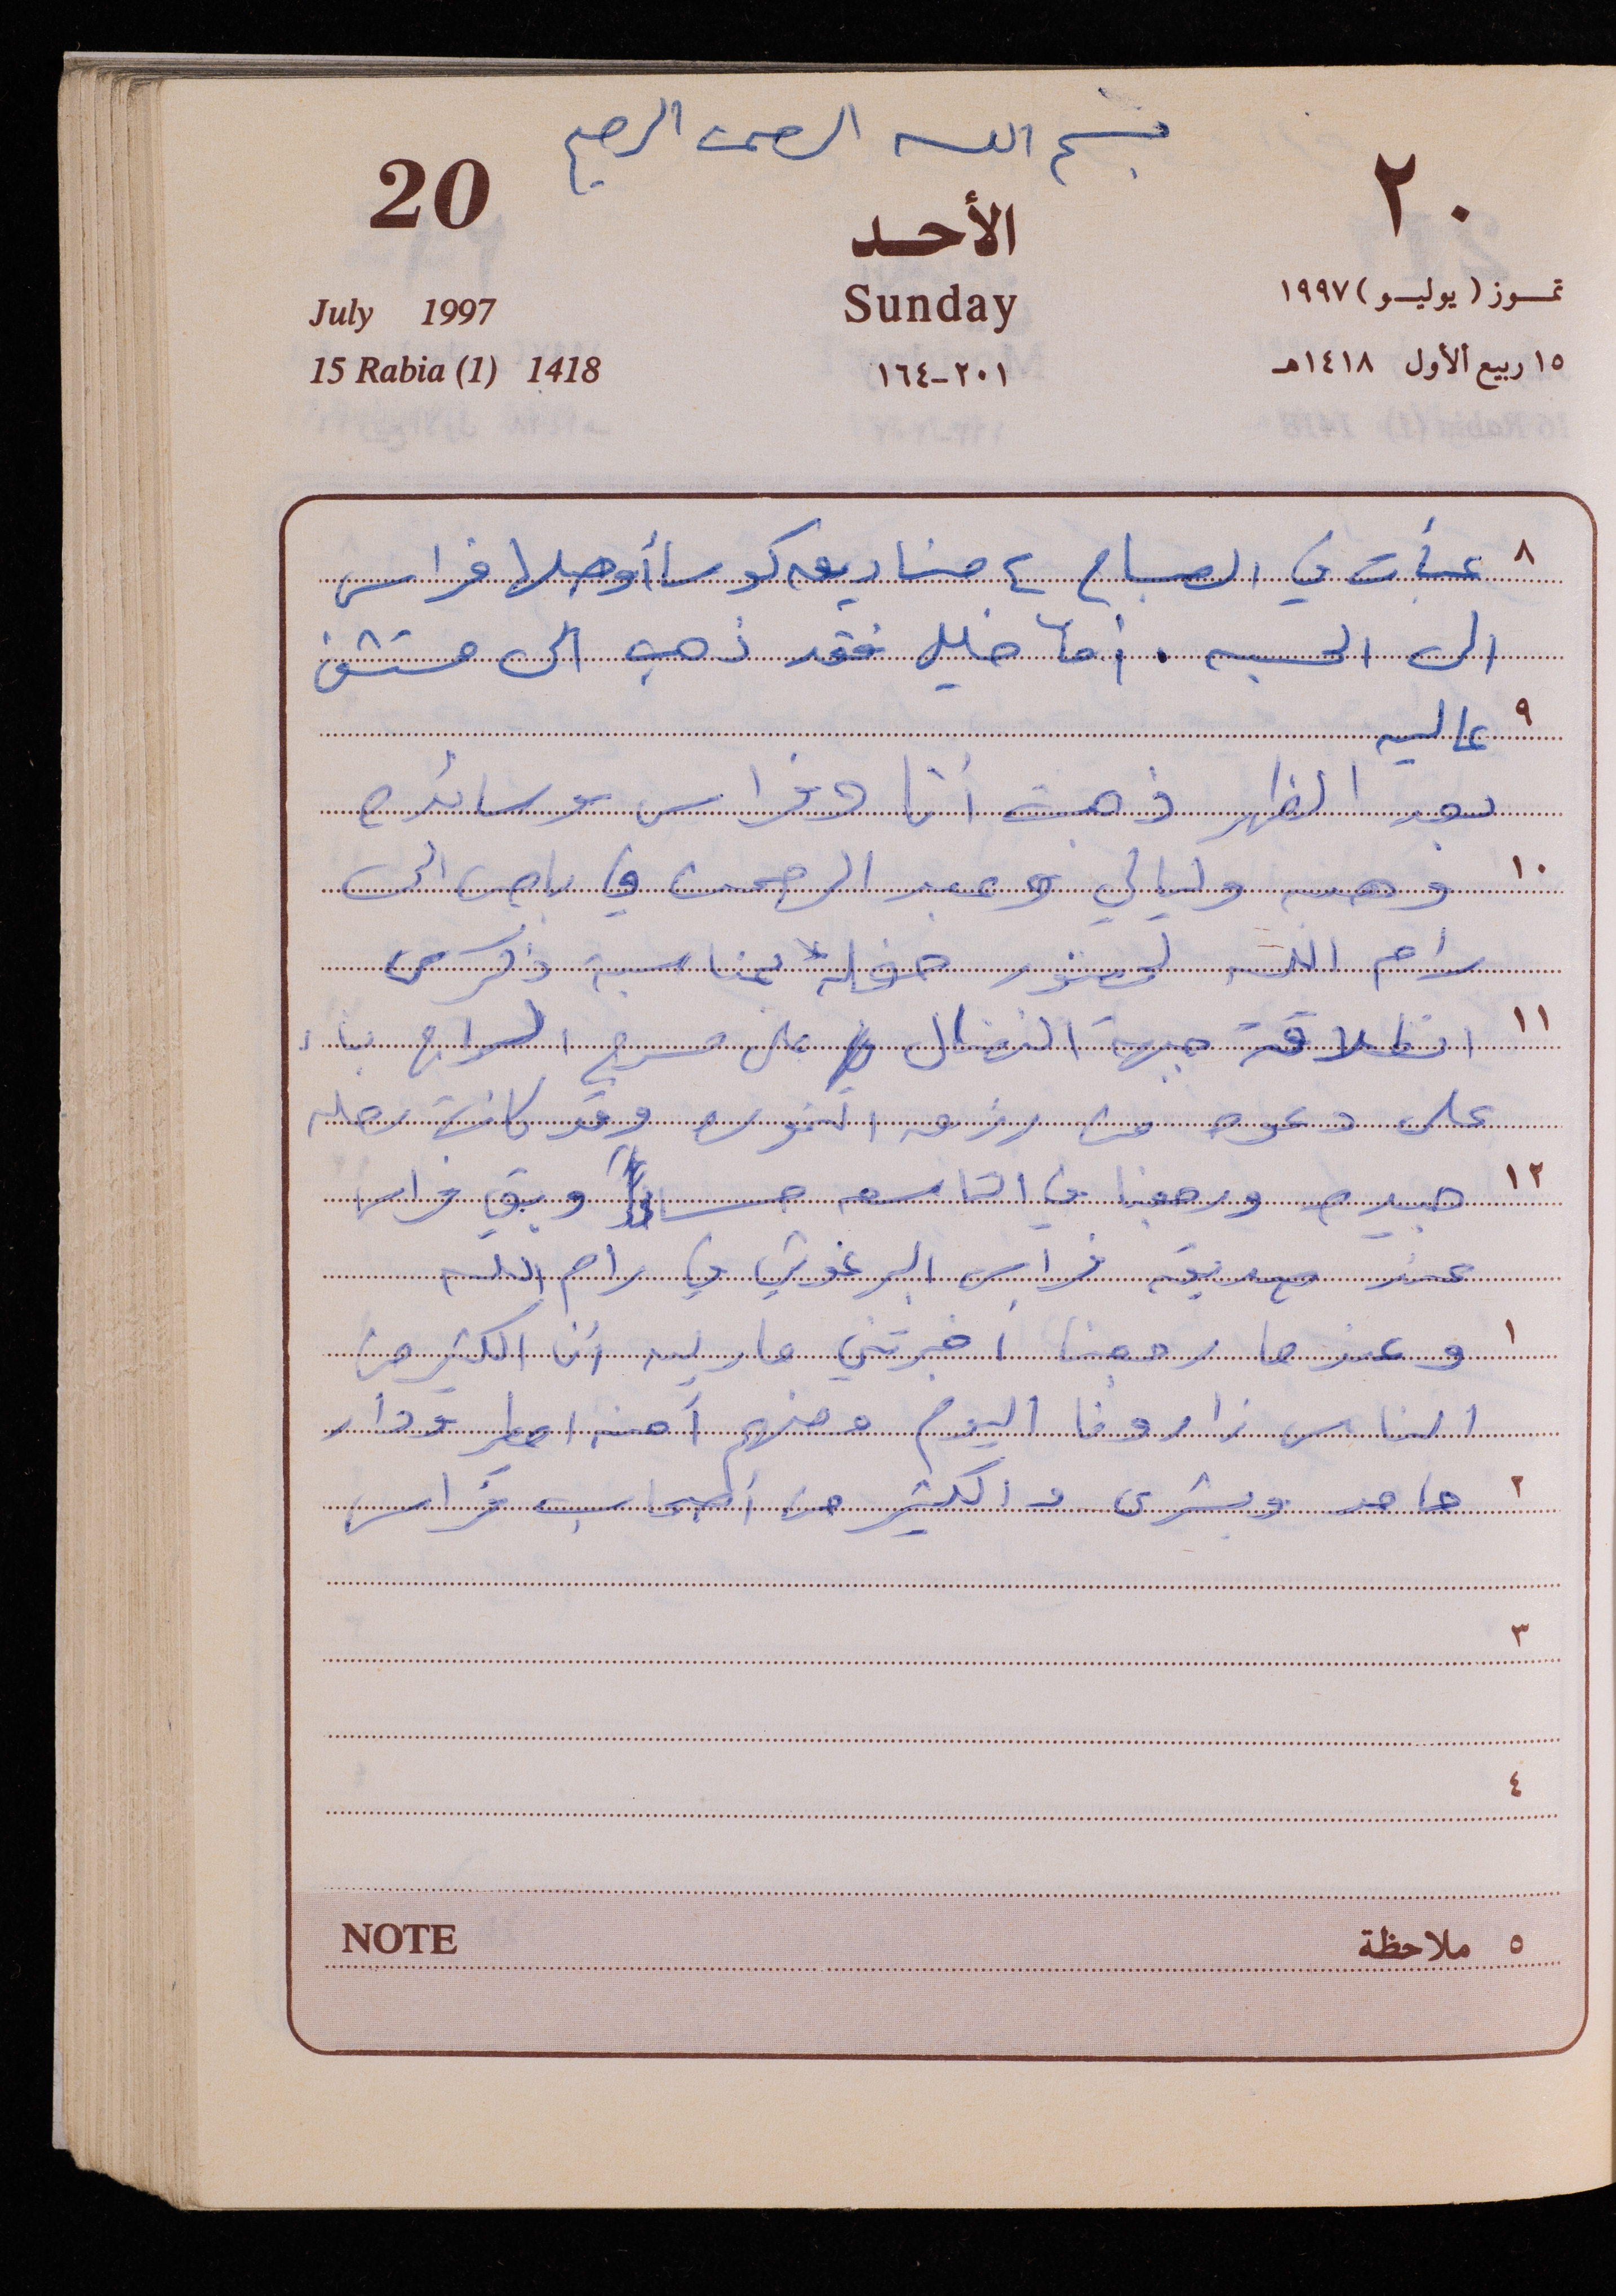 بسم الله الرحمن الرحيم
20
٢٠
الأحد
Sunday
July 1997
تمــوز ( يوليــو ) ١٩٩٧
15 Rabia (1) 1418
٢٠١-١٦٤
١٥ ربيع الأول ١٤١٨هـ
٨ عبأت في الصباح ٤ صناديق كوسا أوصلها فراس
الى الحسبه . أما خليل فقد ذهب الى مستشفى
٩ عاليه
بعد الظهر ذهبت أنا وفراس وسائده
١٠ وهبه وليالي وعبد الرحمن في باص الى
رام الله لحضور حفلة بمناسبة ذكرى
١١ انطلاقة جبهة النضال على مسرح السراج بناء
على دعوه من رزق النمورة وقد كانت رحله
١٢ جيده ورجعنا في التاسعه مساءً وبقي فراس
عند صديقه فراس البرغوثي في رام الله
١ وعندما رجعنا أخبرتني ماريه أن الكثير من
الناس زارونا اليوم ومنهم آمنه مطر ودار
٢ حامد وبشرى والكثير من أصحاب فراس
٣
٤
NOTE
٥ ملاحظة